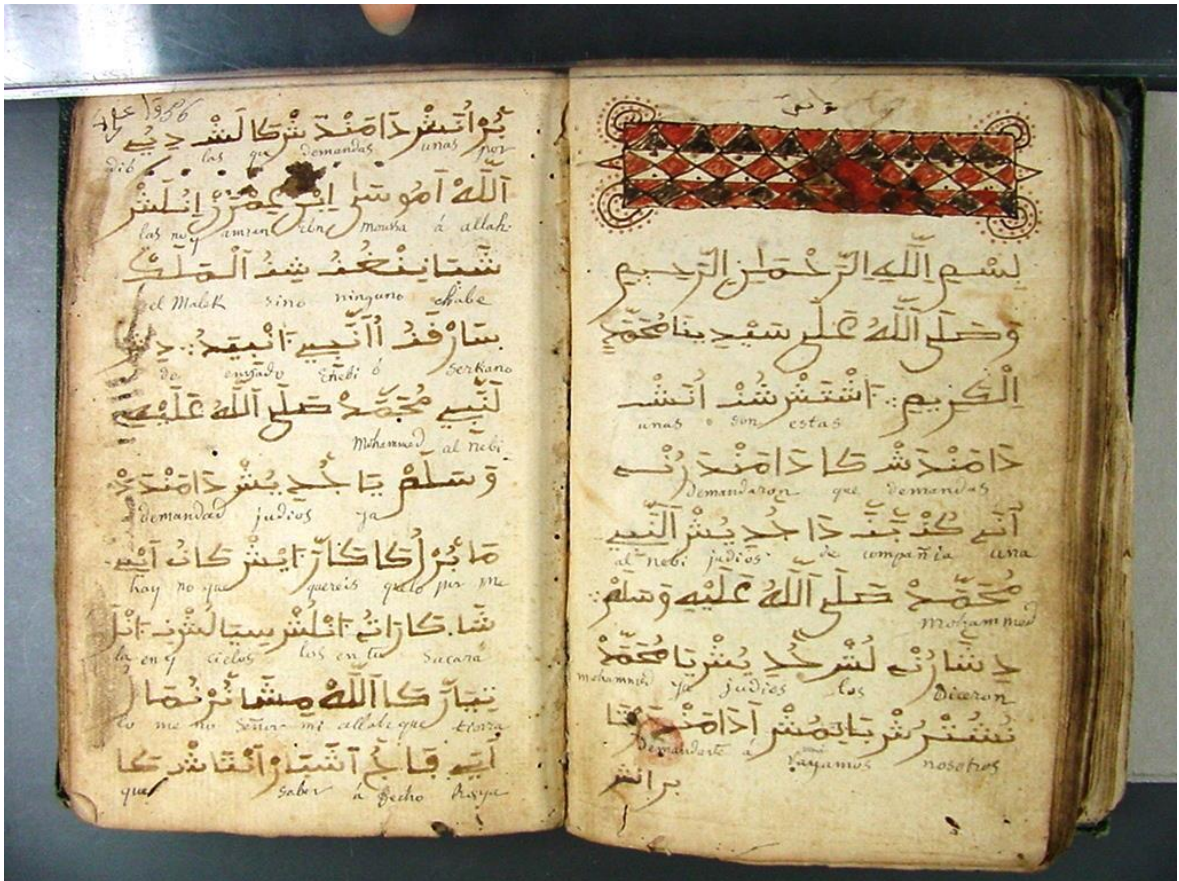 بِسْمِ اللَّهِ الرَّحْمَٰنِ الرَّحِيمِ
وَصَلَّى اللَّهُ عَلَى سَيِّدِنَا مُحَمَّدٍ
الْكَرِيمِ ∴ اَشْتَشْ شُنْ اُنَشْ
unas son estas
ذَامَنْدَشْ كَا ذَامَنْدَرُنْ
demandaron que demandas
ذَا جُدِيُشْ اَلنَّبِي
al nebi judios de compañia una
مُحَمَّدْ صَلَّى اللَّهُ عَلَيْهِ وَسَلَّمْ ∴
Mohammed
دِشَارُنْ لُشْ جُدِيُشْ يَا مُحَمَّدْ
mohammed ya judios los Diceron
نُشُتْرُشْ بَايَمُشْ اَذَامَنْدَرْتَا
Demandarte á Vayamos nosotros
1956
بُرْ اُنَشْ ذَامَنْدَشْ كَا لَشْ
dió las que demandas unas por
اَللَّهْ اَمُوسَى اِبْنِ عِمْرَنْ اِنُلَشْ
las no y amran ebn moussa á allah
شَبَا نِنْغُنُ شِنُ اَلْمَلَكْ
el Malek sino ninguno chabe
سَارْقَنُ اُاَنَّبِي اَنْبِيَدُ
de enviado Ennebi ó Serkano
اَلنَّبِي مُحَمَّدْ صَلَّى اَللَّهُ عَلَيْهِ
Mohammed al nebi
وَسَلَّمْ يَا جُدِيُشْ ذَامَنْدَدْ
demandad judios ya
hay no que quereis que lo por me
la en y cielos los en tu sacara
lo me no Señor mi allah que tierra
que saber á hecho haya